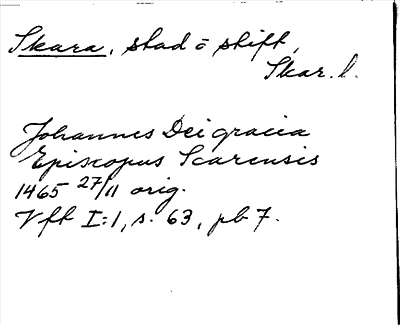 Skara, stad o stift,
Skar. l.
Johannes Dei gracia
Episcopus Scarensis
1465 27/11 orig.
Vft I:1, s. 63, pb 7.